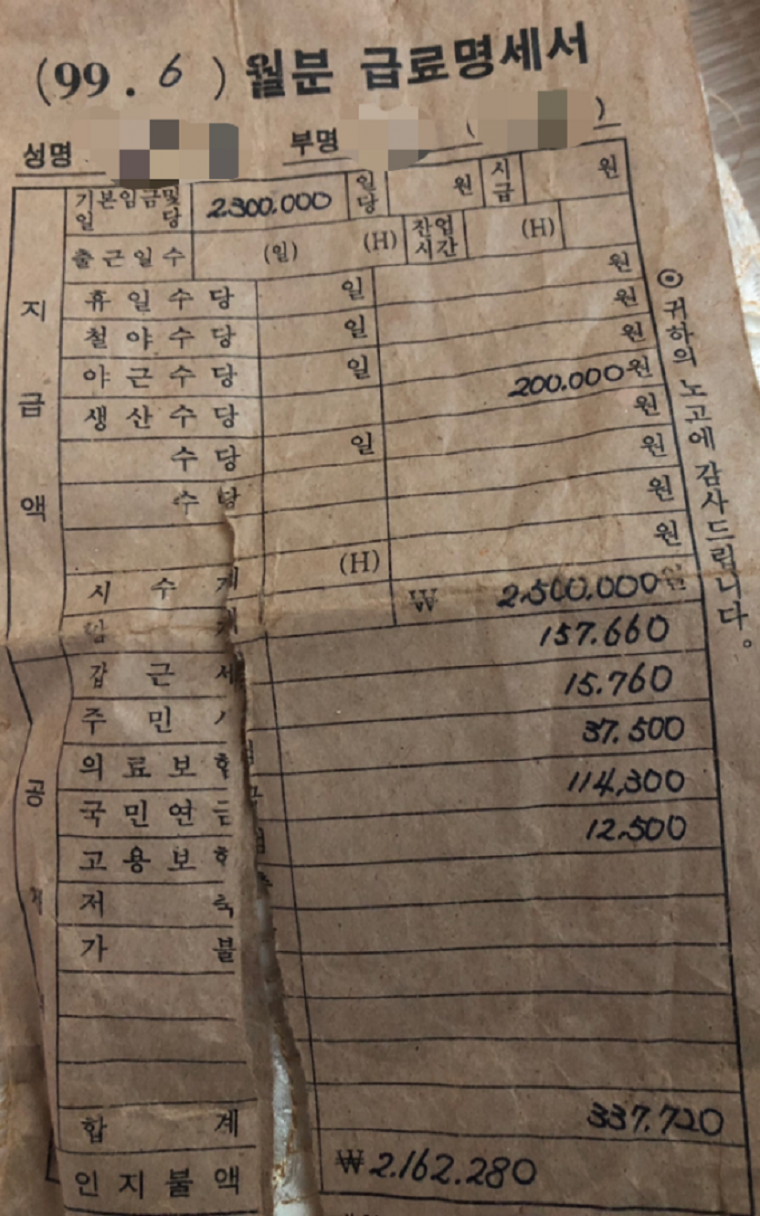 (99. 6) 월분 급료명세서
성명 부명 ( )
기본임금및 일당 2.300.000 일당 원 시급 원
출근일수 (일) (H) 잔업시간 (H)
지급액
휴일수당 일 원
철야수당 일 원
야근수당 일 원
생산수당 200.000원
수당 일 원
수당 원
원
시수계 (H) 원
합계 ₩ 2.500.000원
공제
갑근세 157.660
주민 15.760
의료보험 37.500
국민연금 114,300
고용보험 12.500
저축
가불
합계 337.720
인지불액 ₩2.162.280
⊙ 귀하의 노고에 감사드립니다。